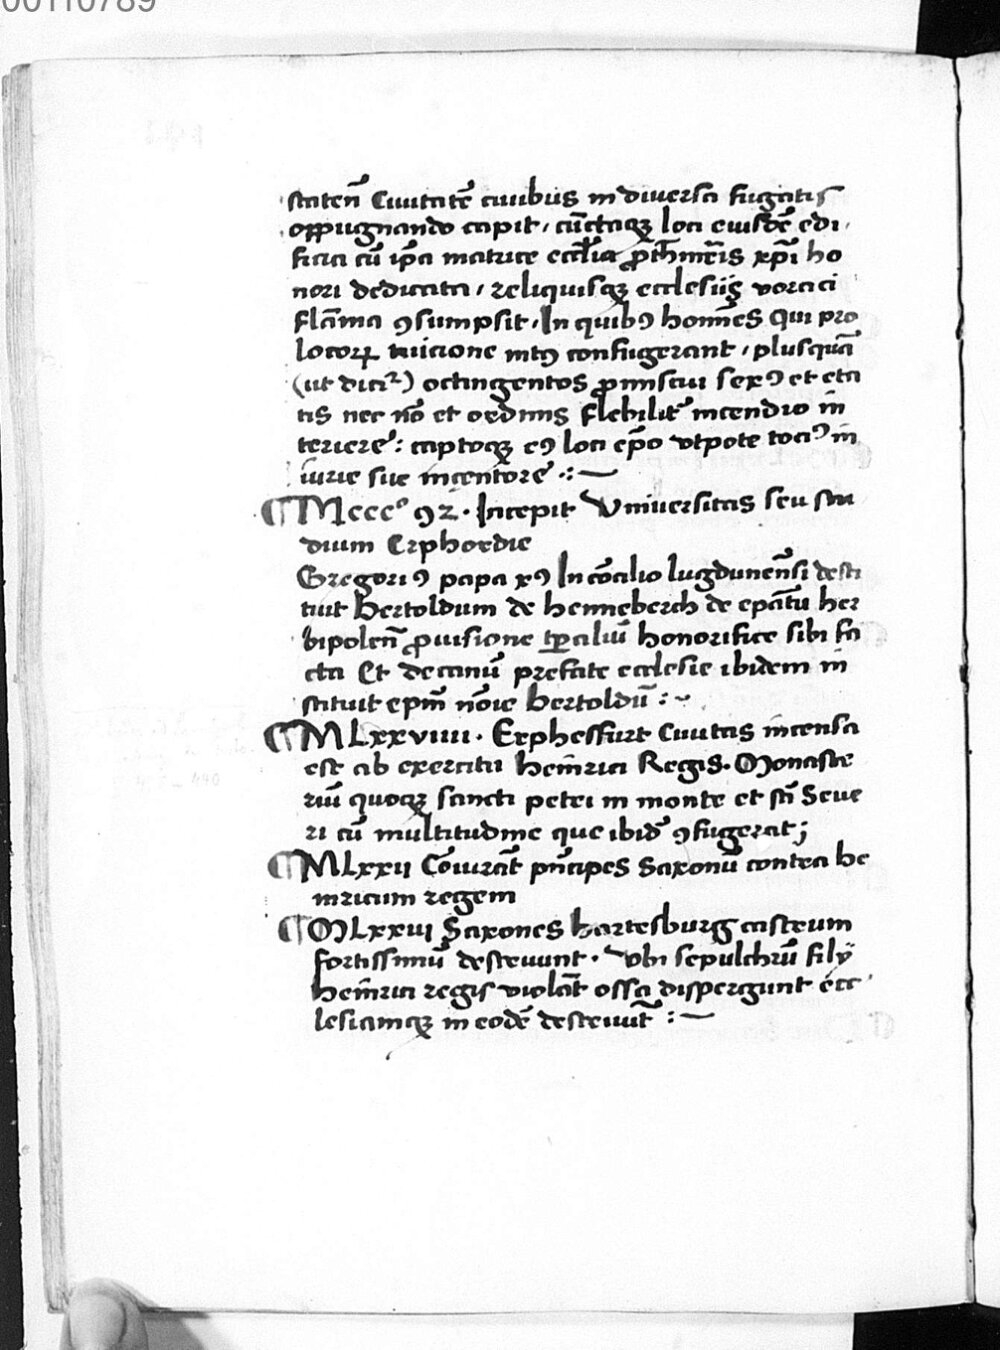 00110789
statenñ Ciuitatē ciuibus in diuersa fugatis
oppugnando capit, cūctaqꝫ loci eiusdē edi
ficia cū ip̄a matrice eccl̄ia ꝓthom̄ris xp̄i ho
nori dedicata, reliquisqꝫ ecclesiis voraci
flāma ꝯsumpsit, In quibꝰ hom̄es qui pro
locoꝝ mūicione intꝰ confugerant, plusquā
(ut dicit᷑) octingentos ꝓmiscui sexꝰ et eta
tis nec nō et ordinis flebilit᷑ incendio in
teriere᷑: captoqꝫ eꝰ loci ep̄o vtpote tociꝰ in
iurie sue incentore᷑ :~
¶ Mccccº 92. Incepit Vniuersitas seu stu
dium Erphordie
Gregoriꝰ papa xꝰ In cōcilio lugdunen̄si desti
tuit Bertoldum de Henneberch de ep̄atu her
bipolen̄ ꝓuisione tp̄aliū honorifice sibi fa
cta Et decanū prefate ecclesie ibidem in
stituit ep̄m nōie Bertoldū :~
¶ MLxxviiii. Erphesfurt Ciuitas incensa
est ab exercitu heinrici Regis. Monaste
riū quoqꝫ sancti petri in monte et sc̄i Seue
ri cū multitudine que ibid᷑ ꝯfugerat;
¶ MLxxii Cōiurāt pn̄cipes Saxonū contra he
inricum regem
¶ MLxxiii Saxones hartesburg castrum
fortissimū destruunt. Vbi sepulchrū filij
heinrici regis violāt ossa dispergunt ecc
lesiamqꝫ in eodē destruūt :~